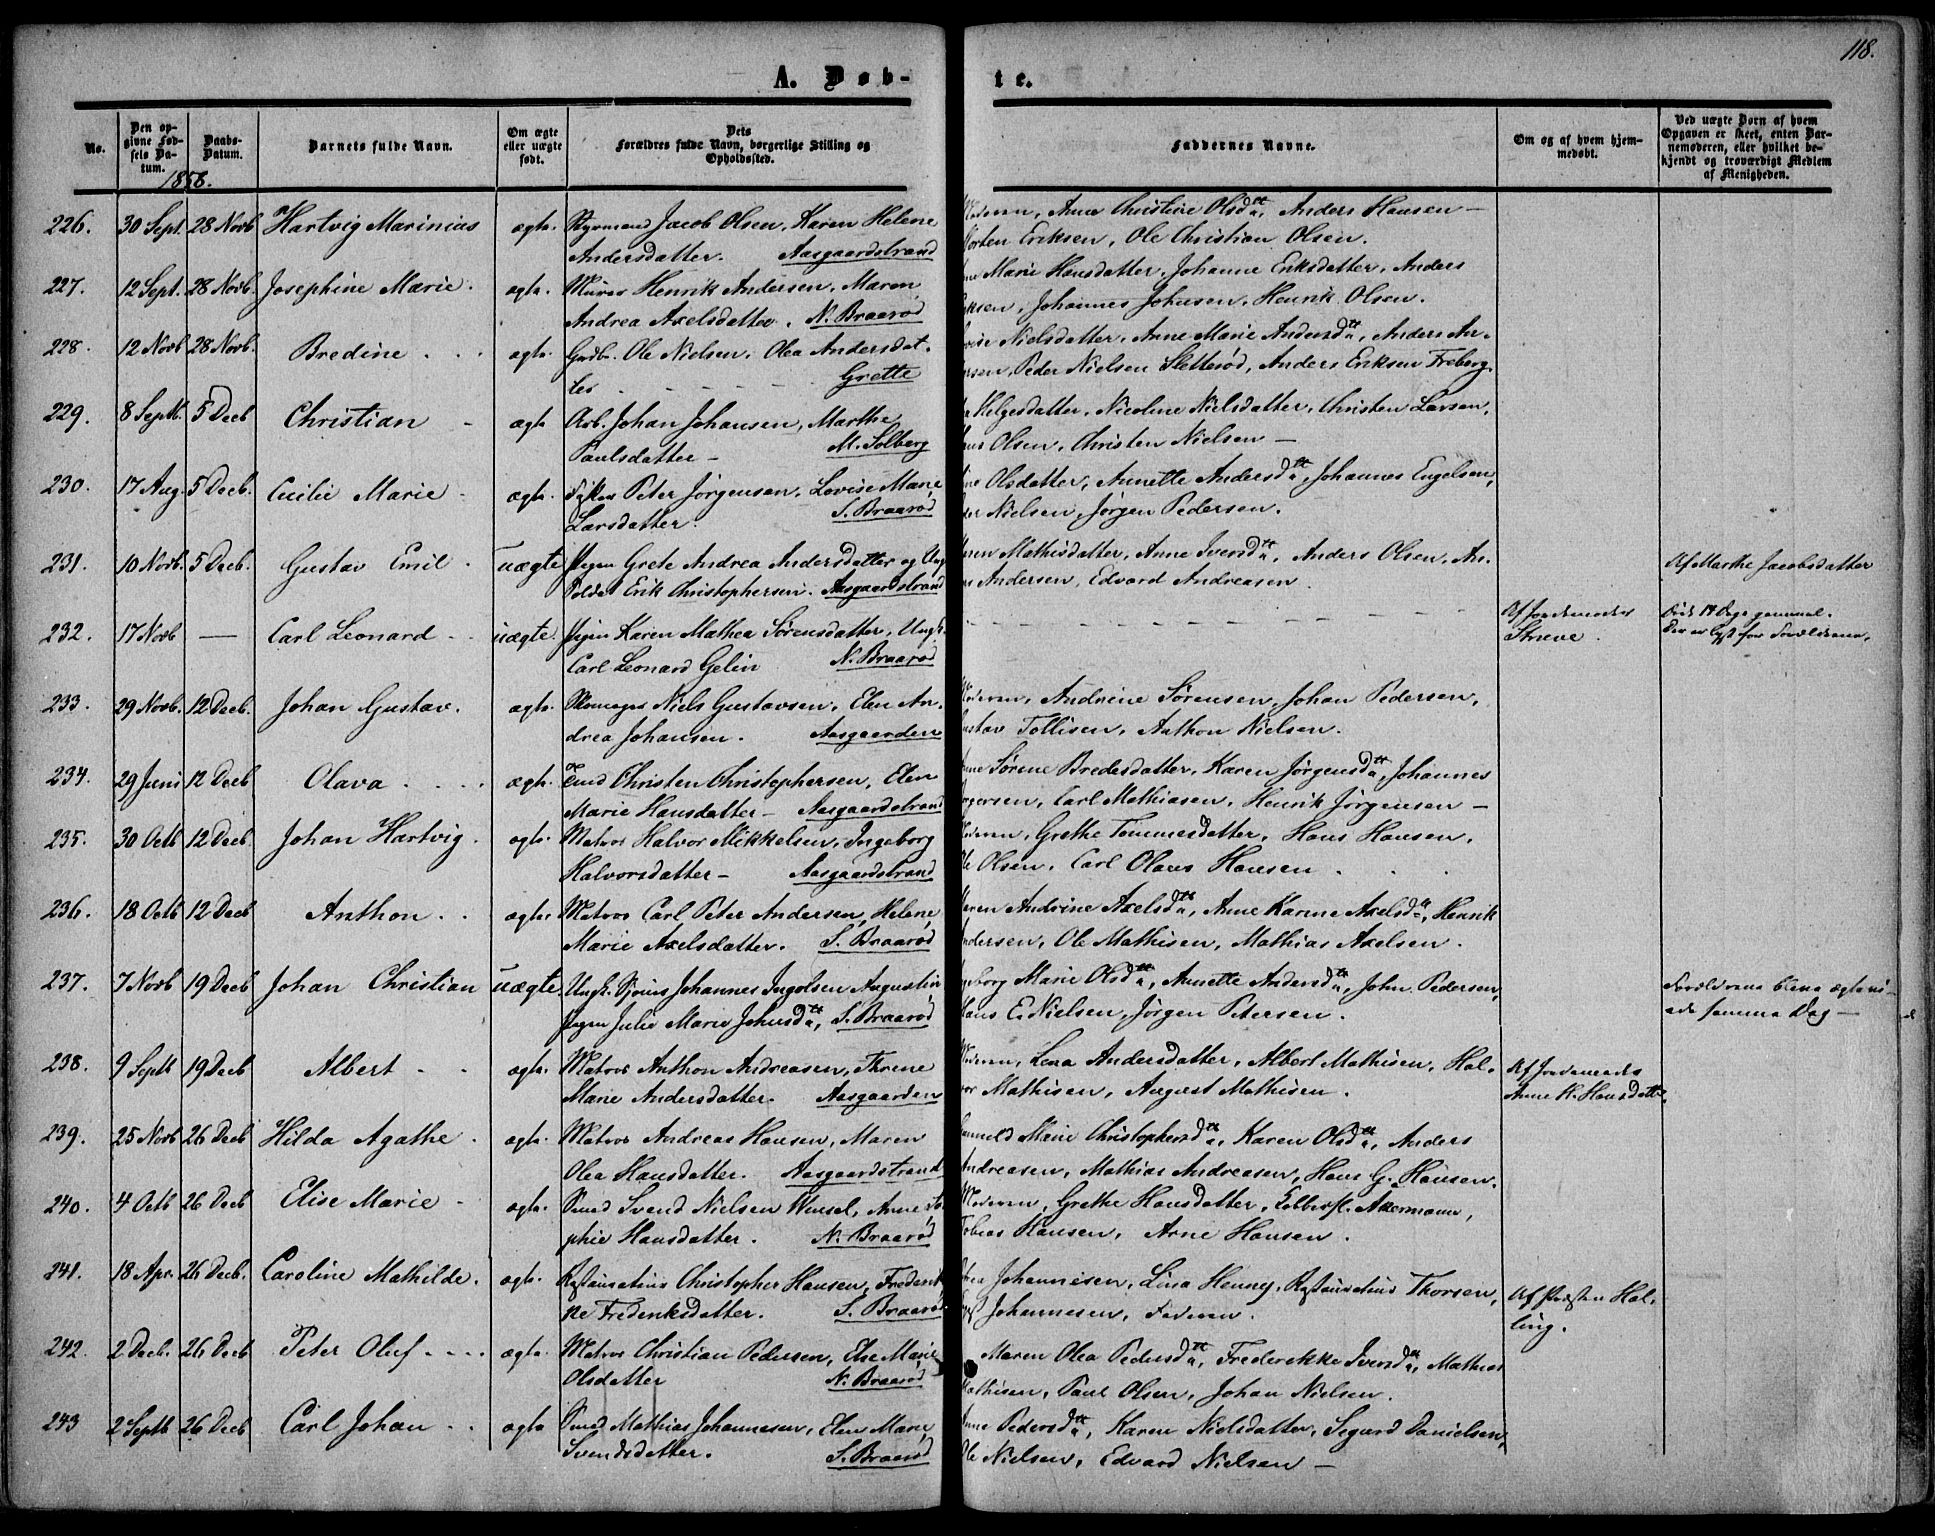 118.
A. Døb-
te.
No.
Den op-
givne Fød-
sels Da-
tum.
Daabs-
Datum.
Barnets fulde Navn.
Om ægte
eller uægte
født.
Dets
Forældres fulde Navn, borgerlige Stilling og
Opholdssted.
Faddernes Navne.
Om og af hvem hjem-
medøbt.
Ved uægte Børn af hvem
Opgaven er skeet, enten Bar-
nemoderen, eller hvilket be-
kjendt og troværdigt Medlem
af Menigheden.
1858.
226. 30 Sept. 28 Novb Hartvig Marinius ægte. Styrmand Jacob Olsen, Karen Helene
Andersdatter. Aasgaardstrand
Moderen, Anne Christine Olsdtr, Anders Hansen –
Morten Eriksen, Ole Christian Olsen.
227. 12 Sept. 28 Novb. Josephine Marie. ægte. Murer Henrik Andersen, Maren
Andrea Axelsdatter. N. Braarød
Marie Hansdatter, Johanne Eriksdatter, Anders
Johannes Johnsen, Henrik Olsen.
228. 12 Novb 28 Novb. Bredine ægte. Gmbr. Ole Nielsen, Olea Andersdat-
ter Grette
Nielsdatter, Anne Marie Andersdtr, Anders An-
dersen, Peder Nielsen Sletterød, Anders Eriksen Freberg.
229. 8 Septb. 5 Decb Christian ægte Arb. Johan Johansen, Marthe
Paulsdatter – M. Solberg
Helgesdatter, Nicoline Nielsdatter, Christen Larsen,
Olsen, Christen Nielsen –
230. 17 Aug. 5 Decb. Cecilie Marie ægte. Peter Jørgensen, Lovise Marie
Larsdatter. S. Braarød
Olsdatter, Annette Andersdtr, Johannes Engelsen,
Nielsen, Jørgen Pedersen.
231. 10 Novb. 5 Decb. Gustav Emil uægte Pigen Grete Andrea Andersdatter og Ung-
Erik Christophersen. Aasgaardstrand
Maren Mathisdatter, Anne Iversdtr, Anders Olsen, An-
Andersen, Edvard Andreasen.
Af Marthe Jacobsdatter
232. 17 Novb — Carl Leonard uægte. Pigen Karen Mathea Sørensdatter, Ungk.
Carl Leonard Gelin N. Braarød
Af Jordemoder
Struve.
Død 14 Dage gammel.
Der er lyst for Forældrene.
233. 29 Novb. 12 Decb. Johan Gustav. ægte. Skomager Niels Gustavsen, Elen An-
drea Johansen. Aasgaarden
Moderen, Andrine Sørensen, Johan Pedersen,
Gustav Tollisen, Anthon Nielsen.
234. 29 Juni 12 Decb Olava ægte. Christen Christophersen, Elen
Marie Hansdatter – Aasgaardstrand
Anne Sørine Bredesdatter, Karen Jørgensdtr, Johannes
Carl Mathiasen, Henrik Jørgensen –
235. 30 Octb 12 Decb Johan Hartvig. ægte. Matros Halvor Mikkelsen, Ingeborg
Halvorsdatter – Aasgaardstrand
Moderen, Grethe Tommesdatter, Hans Hansen,
Ole Olsen, Carl Olaus Hansen
236. 18 Octb 12 Decb Anthon ægte Matros Carl Peter Andersen, Helene
Marie Axelsdatter. S. Braarød
Maren Andrine Axelsdtr, Anne Karine Axelsdtr, Henrik
Andersen, Ole Mathisen, Mathias Axelsen.
237. 7 Novb 19 Decb Johan Christian uægte. Ungk. Johannes Ingolsen Augustin
Pigen Julie Marie Johnsdtr, S. Braarød
Ingeborg Marie Olsdtr, Annette Andersdtr, John Pedersen,
Hans E. Nielsen, Jørgen Petersen.
Forældrene bleve ægtevi-
ede samme Dag –
238. 9 Septb 19 Decb Albert ægte. Matros Anthon Andreasen, Thrine
Marie Andersdatter. Aasgaarden
Moderen, Lena Andersdatter, Albert Mathisen, Hal-
vor Mathisen, August Mathisen.
Af Jordemoder
Anne K. Hansdatter.
239. 25 Novb 26 Decb Hilda Agathe ægte. Matros Andreas Hansen, Maren
Olea Hansdatter. Aasgaardstrand
Gunneld Marie Christophersdtr, Karen Olsdtr, Anders
Andreasen, Mathias Andreasen, Hans G. Hansen.
240. 4 Octb 26 Decb Elise Marie ægte. Smed Svend Nielsen Wensel, Anne So-
phie Hansdatter. N. Braarød
Moderen, Grethe Hansdatter, Tolberfl. Akermann,
Tobias Hansen, Arne Hansen.
241. 18 Apr. 26 Decb. Caroline Mathilde. ægte. Restauratiør Christopher Hansen, Frederik-
ke Frederiksdatter. S. Braarød
Johannesen, Lina Henney, Restauratiør Thorsen,
Johannesen, Faderen.
Af Præsten Hal-
ling.
242. 2 Decb. 26 Decb Peter Oluf ægte. Matros Christian Pedersen, Else Marie
Olsdatter N. Braarød
Maren Olea Pedersdtr, Frederikke Iversdtr, Mathias
Mathisen, Paul Olsen, Johan Nielsen.
243 2 Septb 26 Decb Carl Johan ægte Smed Mathias Johannesen, Elen Marie
Svendsdatter. S. Braarød
Anne Pedersdtr, Karen Nielsdatter, Segurd Danielsen,
Ole Nielsen, Edvard Nielsen –